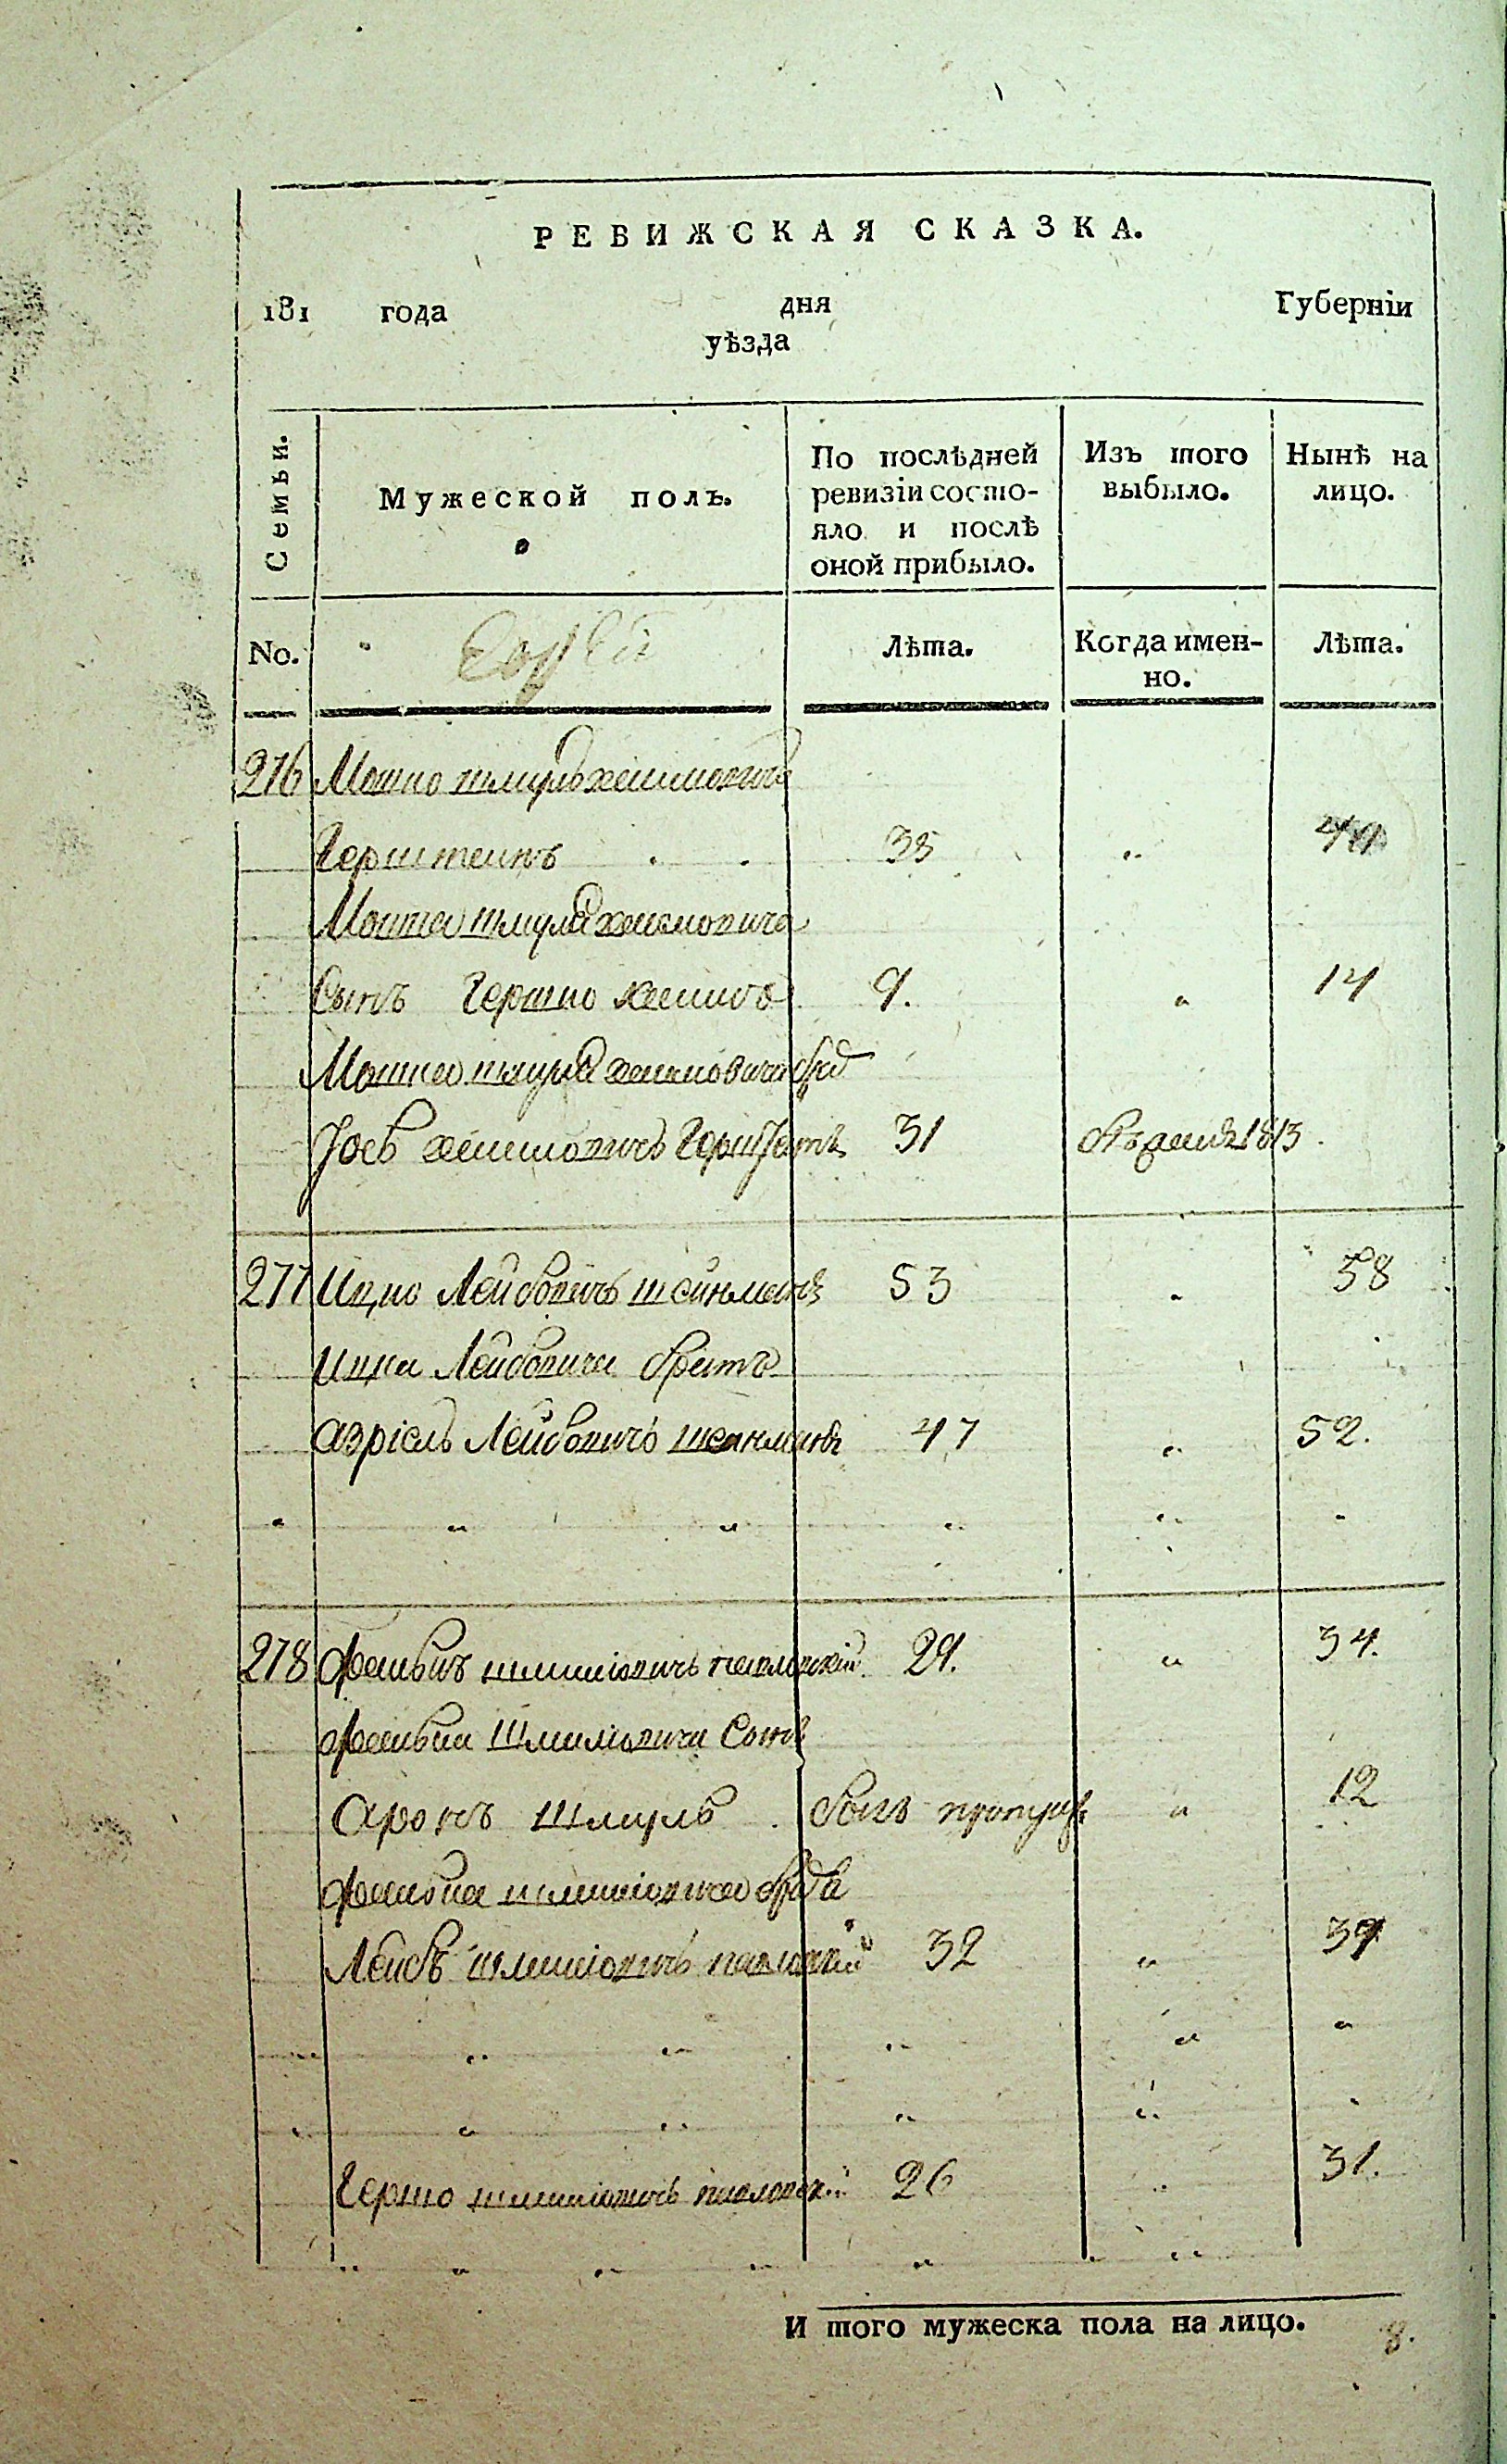 РЕВИЖСКАЯ СКАЗКА.
181 года дня Губерніи
уѣзда
Семьи.
Мужеской полъ.
По послѣдней ревизіи состояло и послѣ оной прибыло.
Изъ того выбыло.
Нынѣ на лицо.
No. Лѣта. Когда именно. Лѣта.
276 Мошко шмуль хаимовичъ
Герштеинъ 35 " 40
Мошка шмуля хаимовича
Сынъ Гершко хаимъ 9. " 14
Мошка шмуля хаимовича брат
Іось хаимовичъ Герштеинъ 31 1813
277 Ицко Лейбовичъ шейнманъ 53 " 58
Ицка Лейбовича братъ
Азріель Лейбовичъ шейнманъ 47 " 52.
278 Фаибишъ шлиміовичъ 29. " 34.
Фаибиша Шлиміовича Сынъ
Аронъ Шмуль былъ пропущ. " 12
Фаибиша шлиміовича братья
Лейбъ шлиміовичъ 32 " 37
Гершко шлиміовичъ 26 " 31.
И того мужеска пола на лицо. 8.